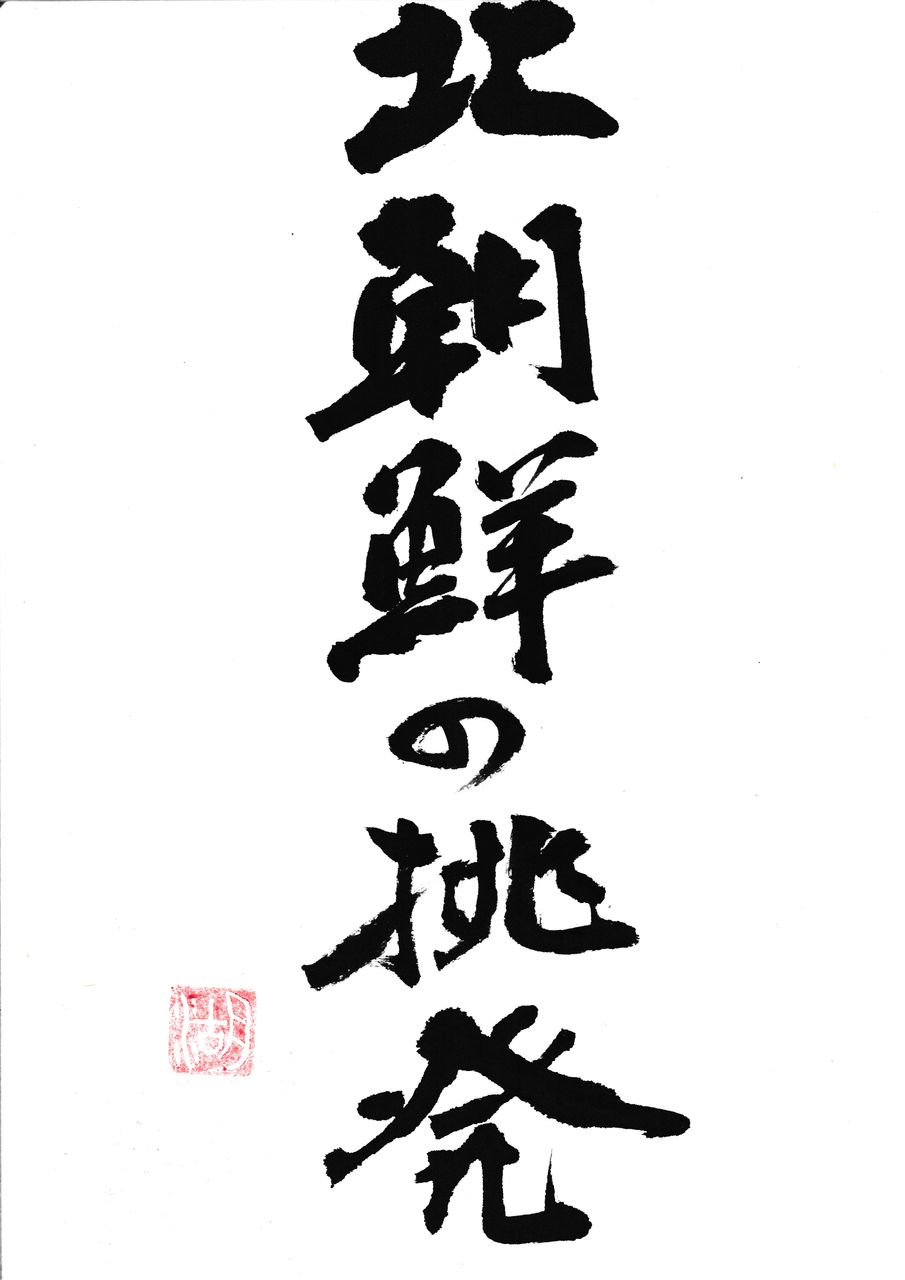 北朝鮮の挑発
湖